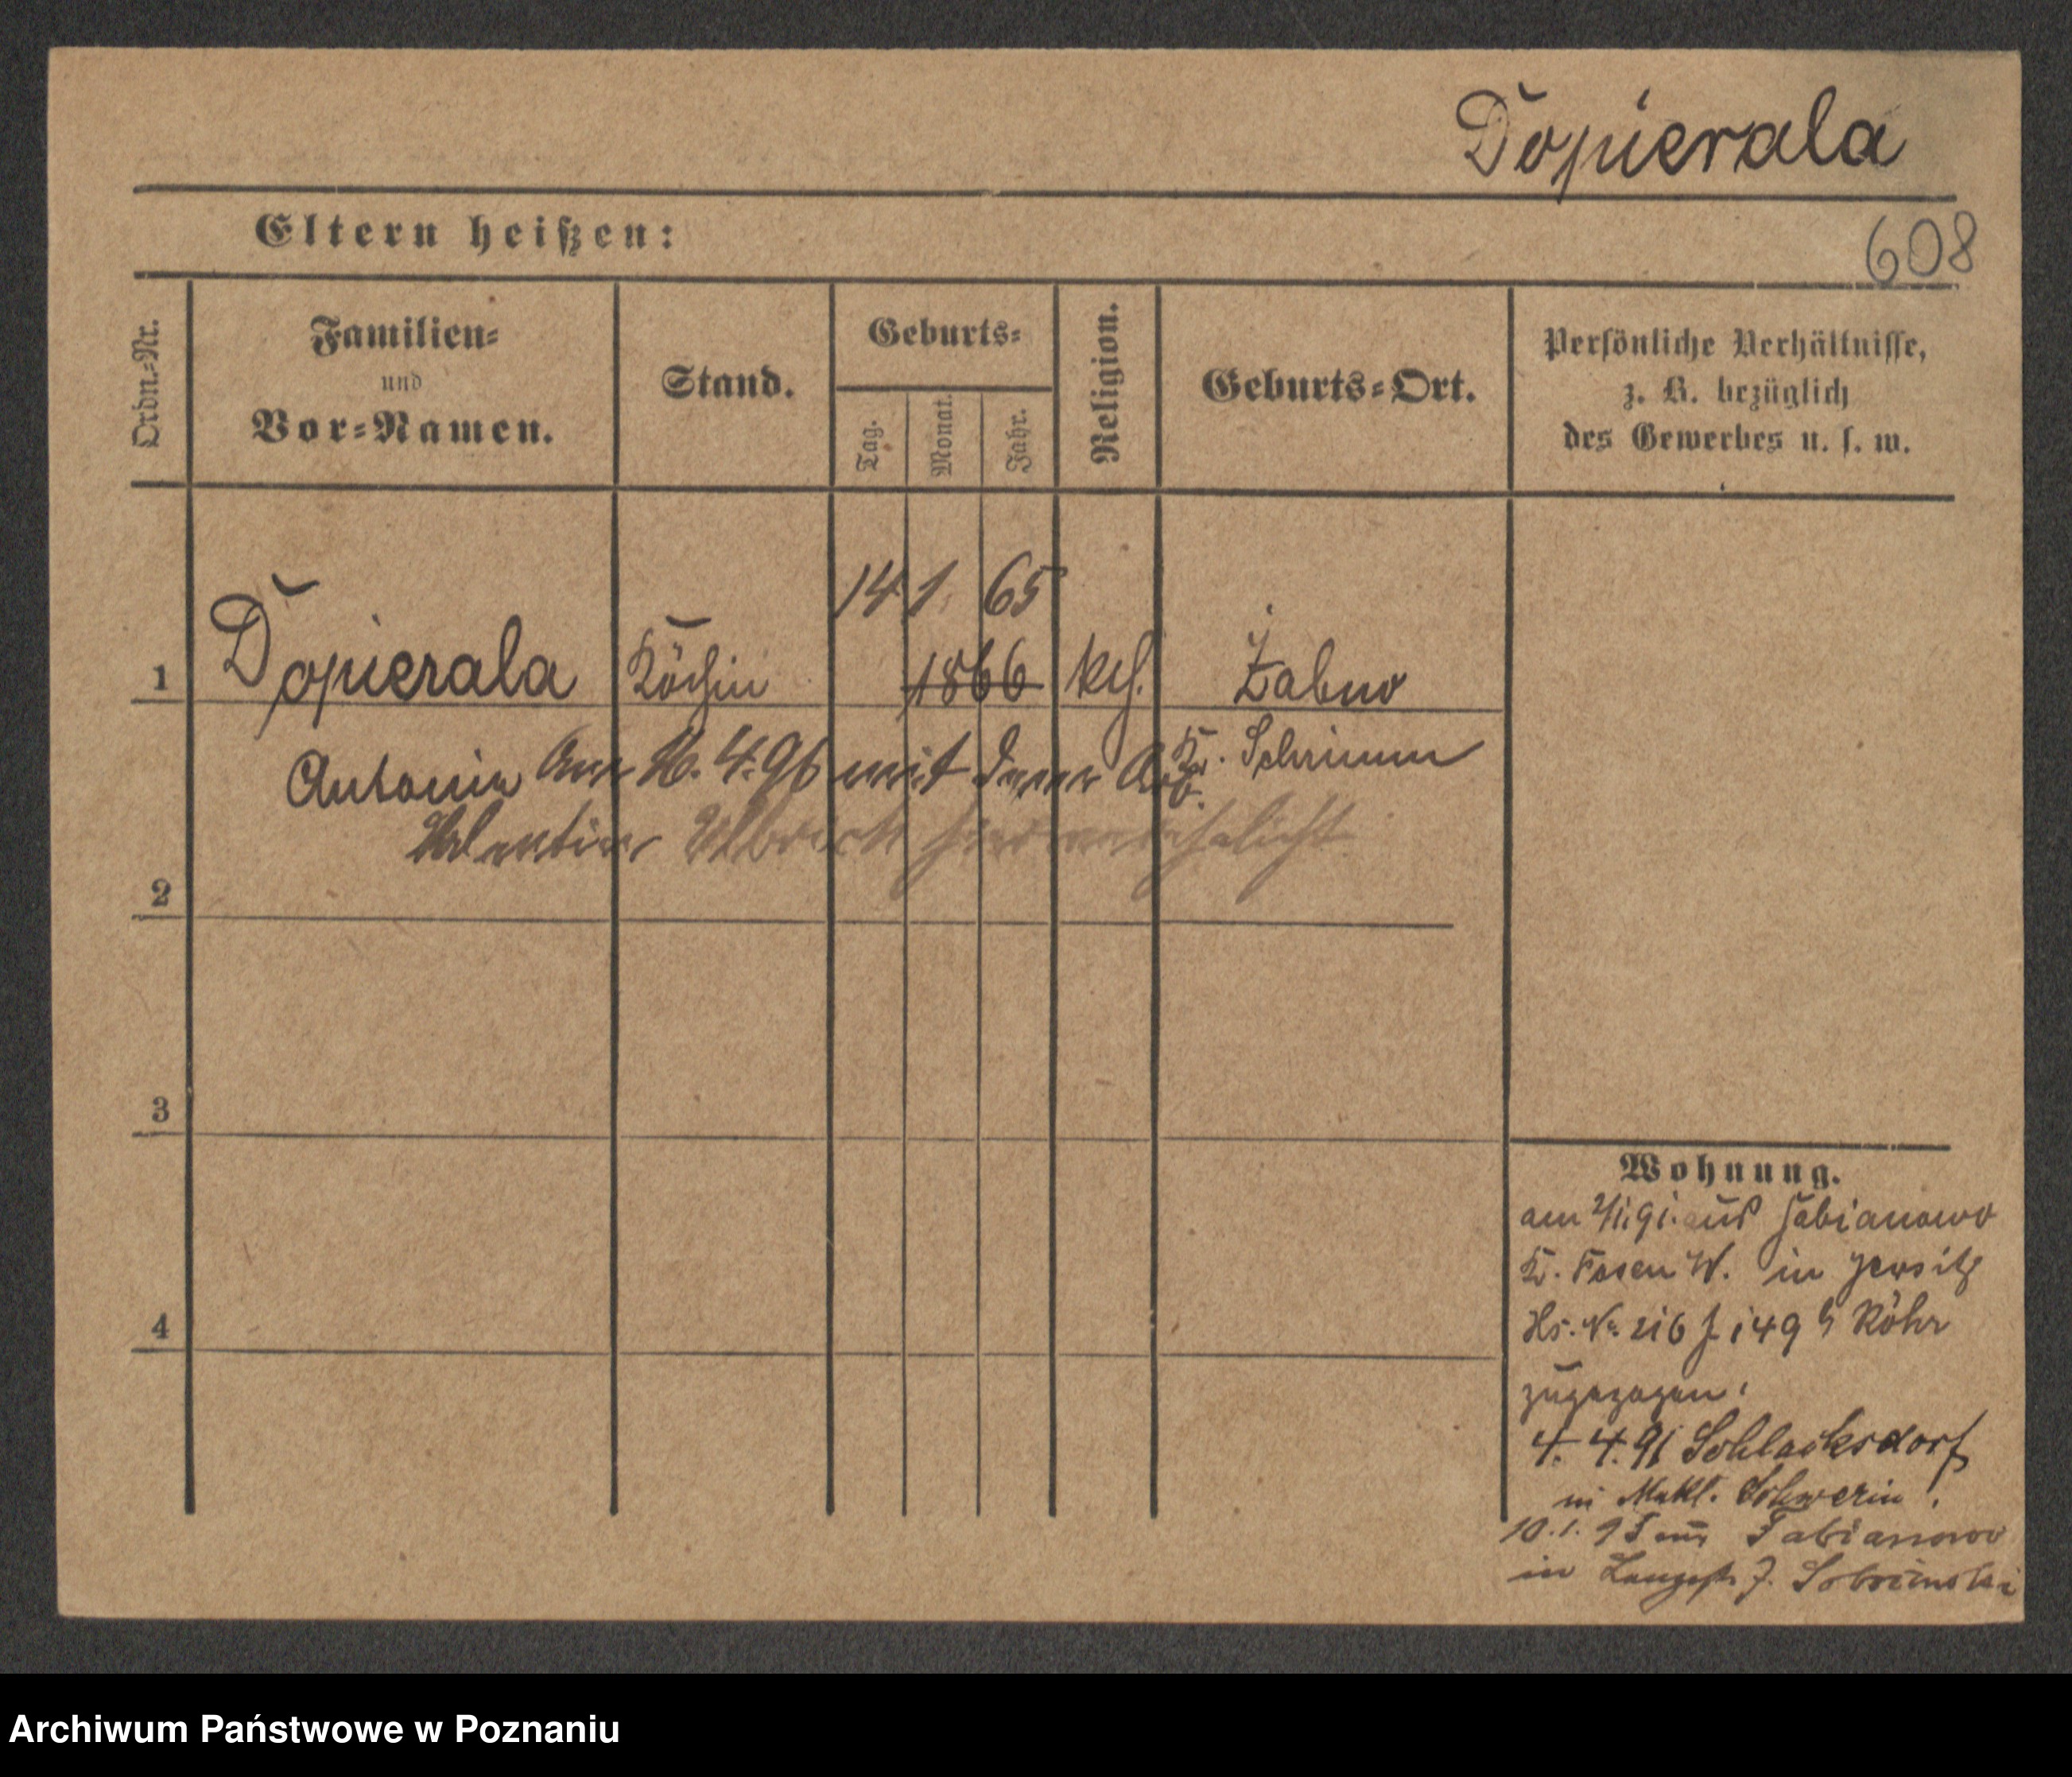 Dopierala
Eltern heißen:
608
Ordn.-Nr.
Familien-
und
Vor-Namen.
Stand.
Geburts-
Tag.
Monat.
Jahr.
Religion.
Geburts-Ort.
Persönliche Verhältnisse,
z. B. bezüglich
des Gewerbes u. s. w.
14 1. 65
1 Dopierala Köchin 1866 kth. Żabno
Kr. Schrimm
Antonia Am 16.4.96 mit dem Arb.
Valentin verehelicht
2
3
4
Wohnung.
am 2/1.91. aus Fabianowo
Kr. Posen W. in Jersitz
Hs. No 216 J. 149 b Röhr
zugezogen.
4.4.91 Schlacksdorf
in Mekl. Schwerin.
10.1.95 aus Fabianowo
in Langestr. 7.
Archiwum Państwowe w Poznaniu